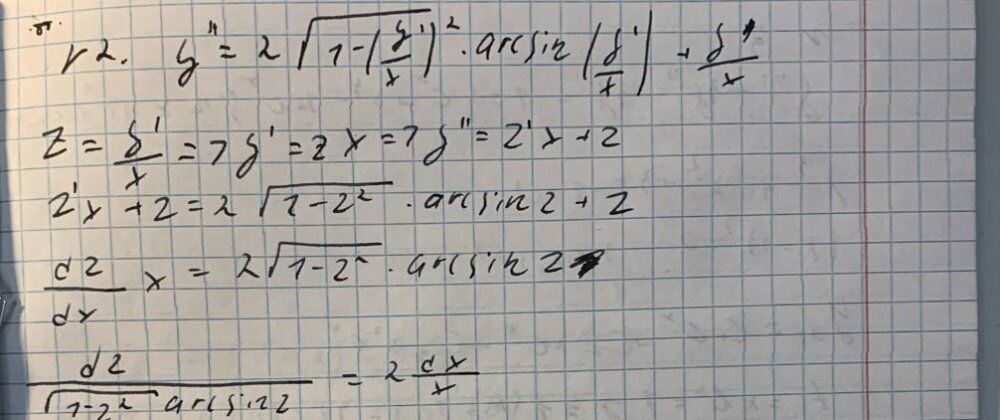 √2. y'' = 2 √(1-(y'/x)²) · arcsin(y'/x) + y'/x
z = y'/x => y' = zx => y'' = z'x + z
z'x + z = 2 √(1-z²) · arcsin z + z
dz/dx x = 2√(1-z²) · arcsin z
dz/(√(1-z²) arcsin z) = 2 dx/x